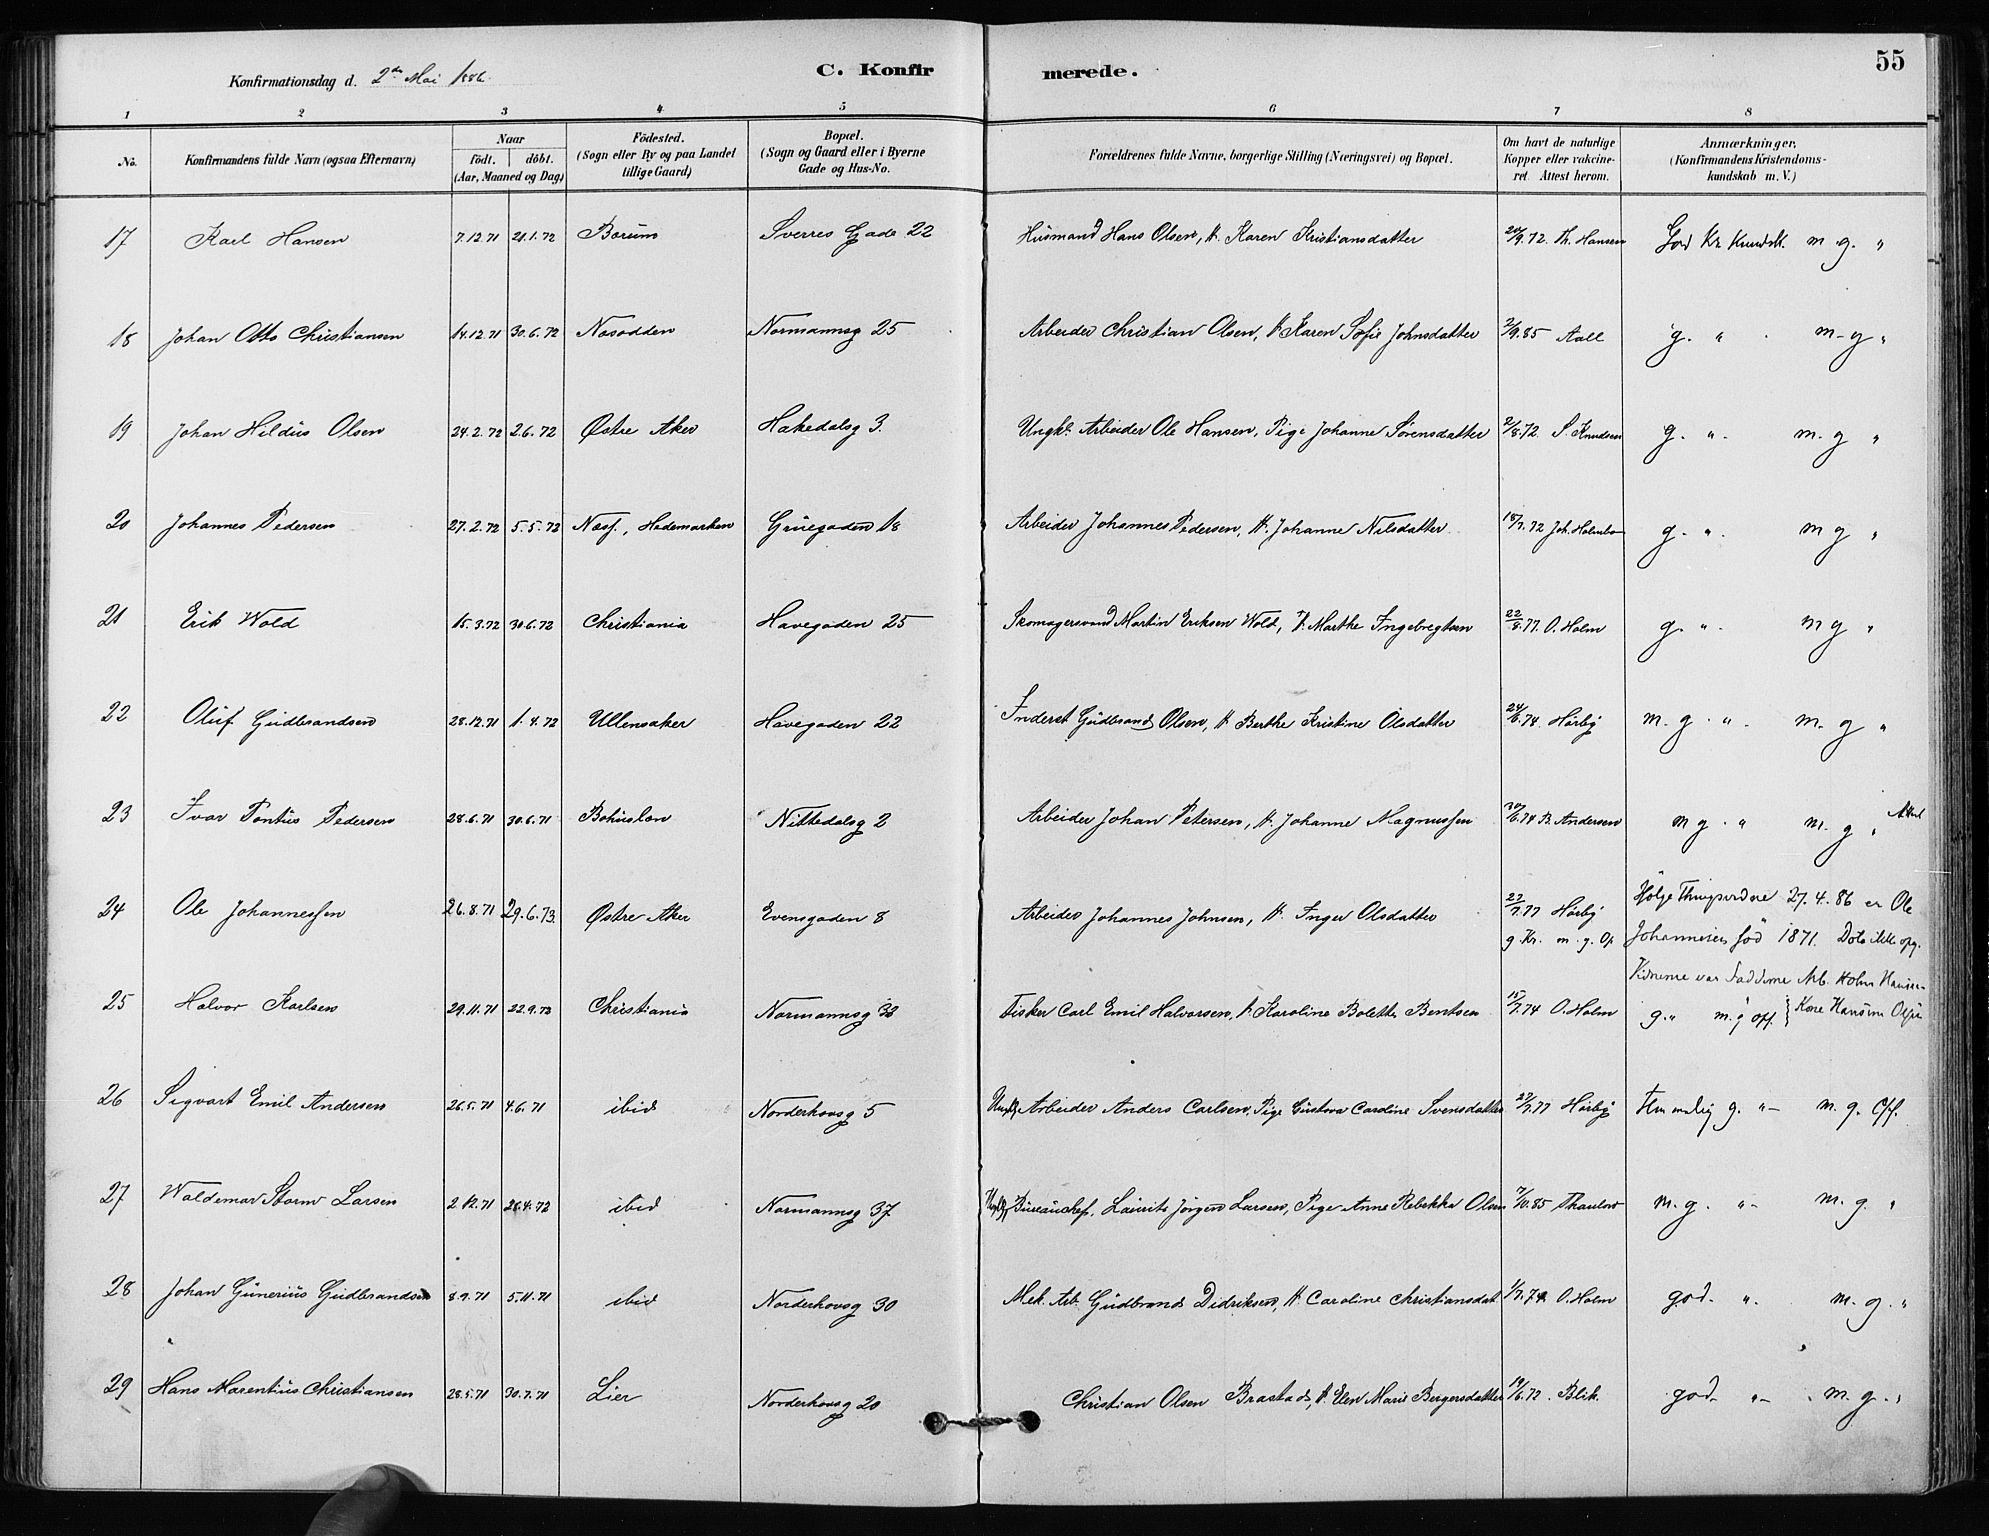 55
Konfirmationsdag d. 2den Mai 1886. C. Konfirmerede.
1 2 3 4 5 6 7 8
No. Konfirmandens fulde Navn (ogsaa Efternavn) Naar født. døbt. (Aar, Maaned og Dag) Födested. (Sogn eller By og paa Landet tillige Gaard) Bopæl. (Sogn og Gaard eller i Byerne Gade og Hus-No. Forældrenes fulde Navne, borgerlige Stilling (Næringsvei) og Bopæl. Om havt de naturlige Kopper eller vakcineret. Attest herom. Anmærkninger. (Konfirmandens Kristendomskundskab m. V.)
17 Karl Hansen 7.12.71 21.1.72 Bærum Sverres Gade 22 Husmand Hans Olsen, H. Karen Kristiansdatter 24/9.72. Th. Hansen God Kr. Kundsk. m. g. "
18 Johan Otto Christiansen 14.12.71 30.6.72 Næsodden Normannsg 25 Arbeider Christian Olsen, H. Karen Sofie Johnsdatter 2/9.85 Aall g. " m-g "
19 Johan Hildus Olsen 24.2.72 2.6.72 Østre Aker Hakedalsg 3. Ungk. Arbeider Ole Hansen, Pige Johanne Sörensdatter 2/8.72. S. Knudsen g. " m. g "
20 Johannes Pedersen 27.2.72 5.5.72 Næs, Hedemarken Gruegaden 18 Arbeider Johannes Pedersen, H. Johanne Nilsdatter 18/7.72 Joh. Holmbo g. " m g "
21 Erik Wold 15.3.72 30.6.72 Christiania Havegaden 25 Skomagersvend Martin Eriksen Wold, H. Marthe Ingebregtsen 22/8.77. O. Holm g. " m g "
22 Oluf Gudbrandsen 28.12.71 1.4.72 Ullensaker Havegaden 22 Inderst Gudbrand Olsen, H. Berthe Kristine Olsdatter 24/6.74. Hørbÿ m. g. " m. g "
23 Ivar Pontus Pedersen 28.6.71 30.6.71 Bohuslen Nittedalsg 2 Arbeider Johan Petersen, H. Johanne Magnussen 30/6.74 B. Andersen m g. " m. g "
24 Ole Johannessen 26.8.71 29.6.73. Østre Aker Evensgaden 8 Arbeider Johannes Johnsen, H. Inger Olsdatter 27/7.77 Hørbÿ
g. Kr. m. g. Op
27.4.86 er Ole
Johannesen född 1871. ikke opg.
Vidnerne var Fadderne Arb. Holm
25 Halvor Karlsen 29.11.71 22.9.72 Christiania Normannsg 32 Fisker Carl Emil Halvorsen, H. Karoline Bolette Bentsen 15/7.74 O. Holm g. " m. g Opf. Kone
26 Sigvart Emil Andersen 26.5.71 4.6.71 ibid Norderhovsg 5 Ungk. Arbeider Anders Carlsen, Pige Gustava Caroline Svensdatter 27/7.77 Hørbÿ Temmelig g. " m. g. Opf.
27 Waldemar Storm Larsen 2.12.71 26.4.72 ibid Normannsg 37 Ungk. Bureauchef. Laurits Jörgen Larsen, Pige Anne Rebekka Olsen 7/10.85 Thaulow m. g. " m. g. "
28 Johan Gunerius Gudbrandsen 8.9.71 5.11.71 ibid Norderhovsg 30 Mek. Arb. Gudbrand Didriksen, H. Caroline Christiansdat 1/7.74 O. Holm god. " m. g. "
29 Hans Marentius Christiansen 28.5.71 30.7.71 Lier Norderhovsg 20 Christian Olsen Brastad, H. Elen Marie Bergersdatter 19/6.72. Blik. god " m. g. "